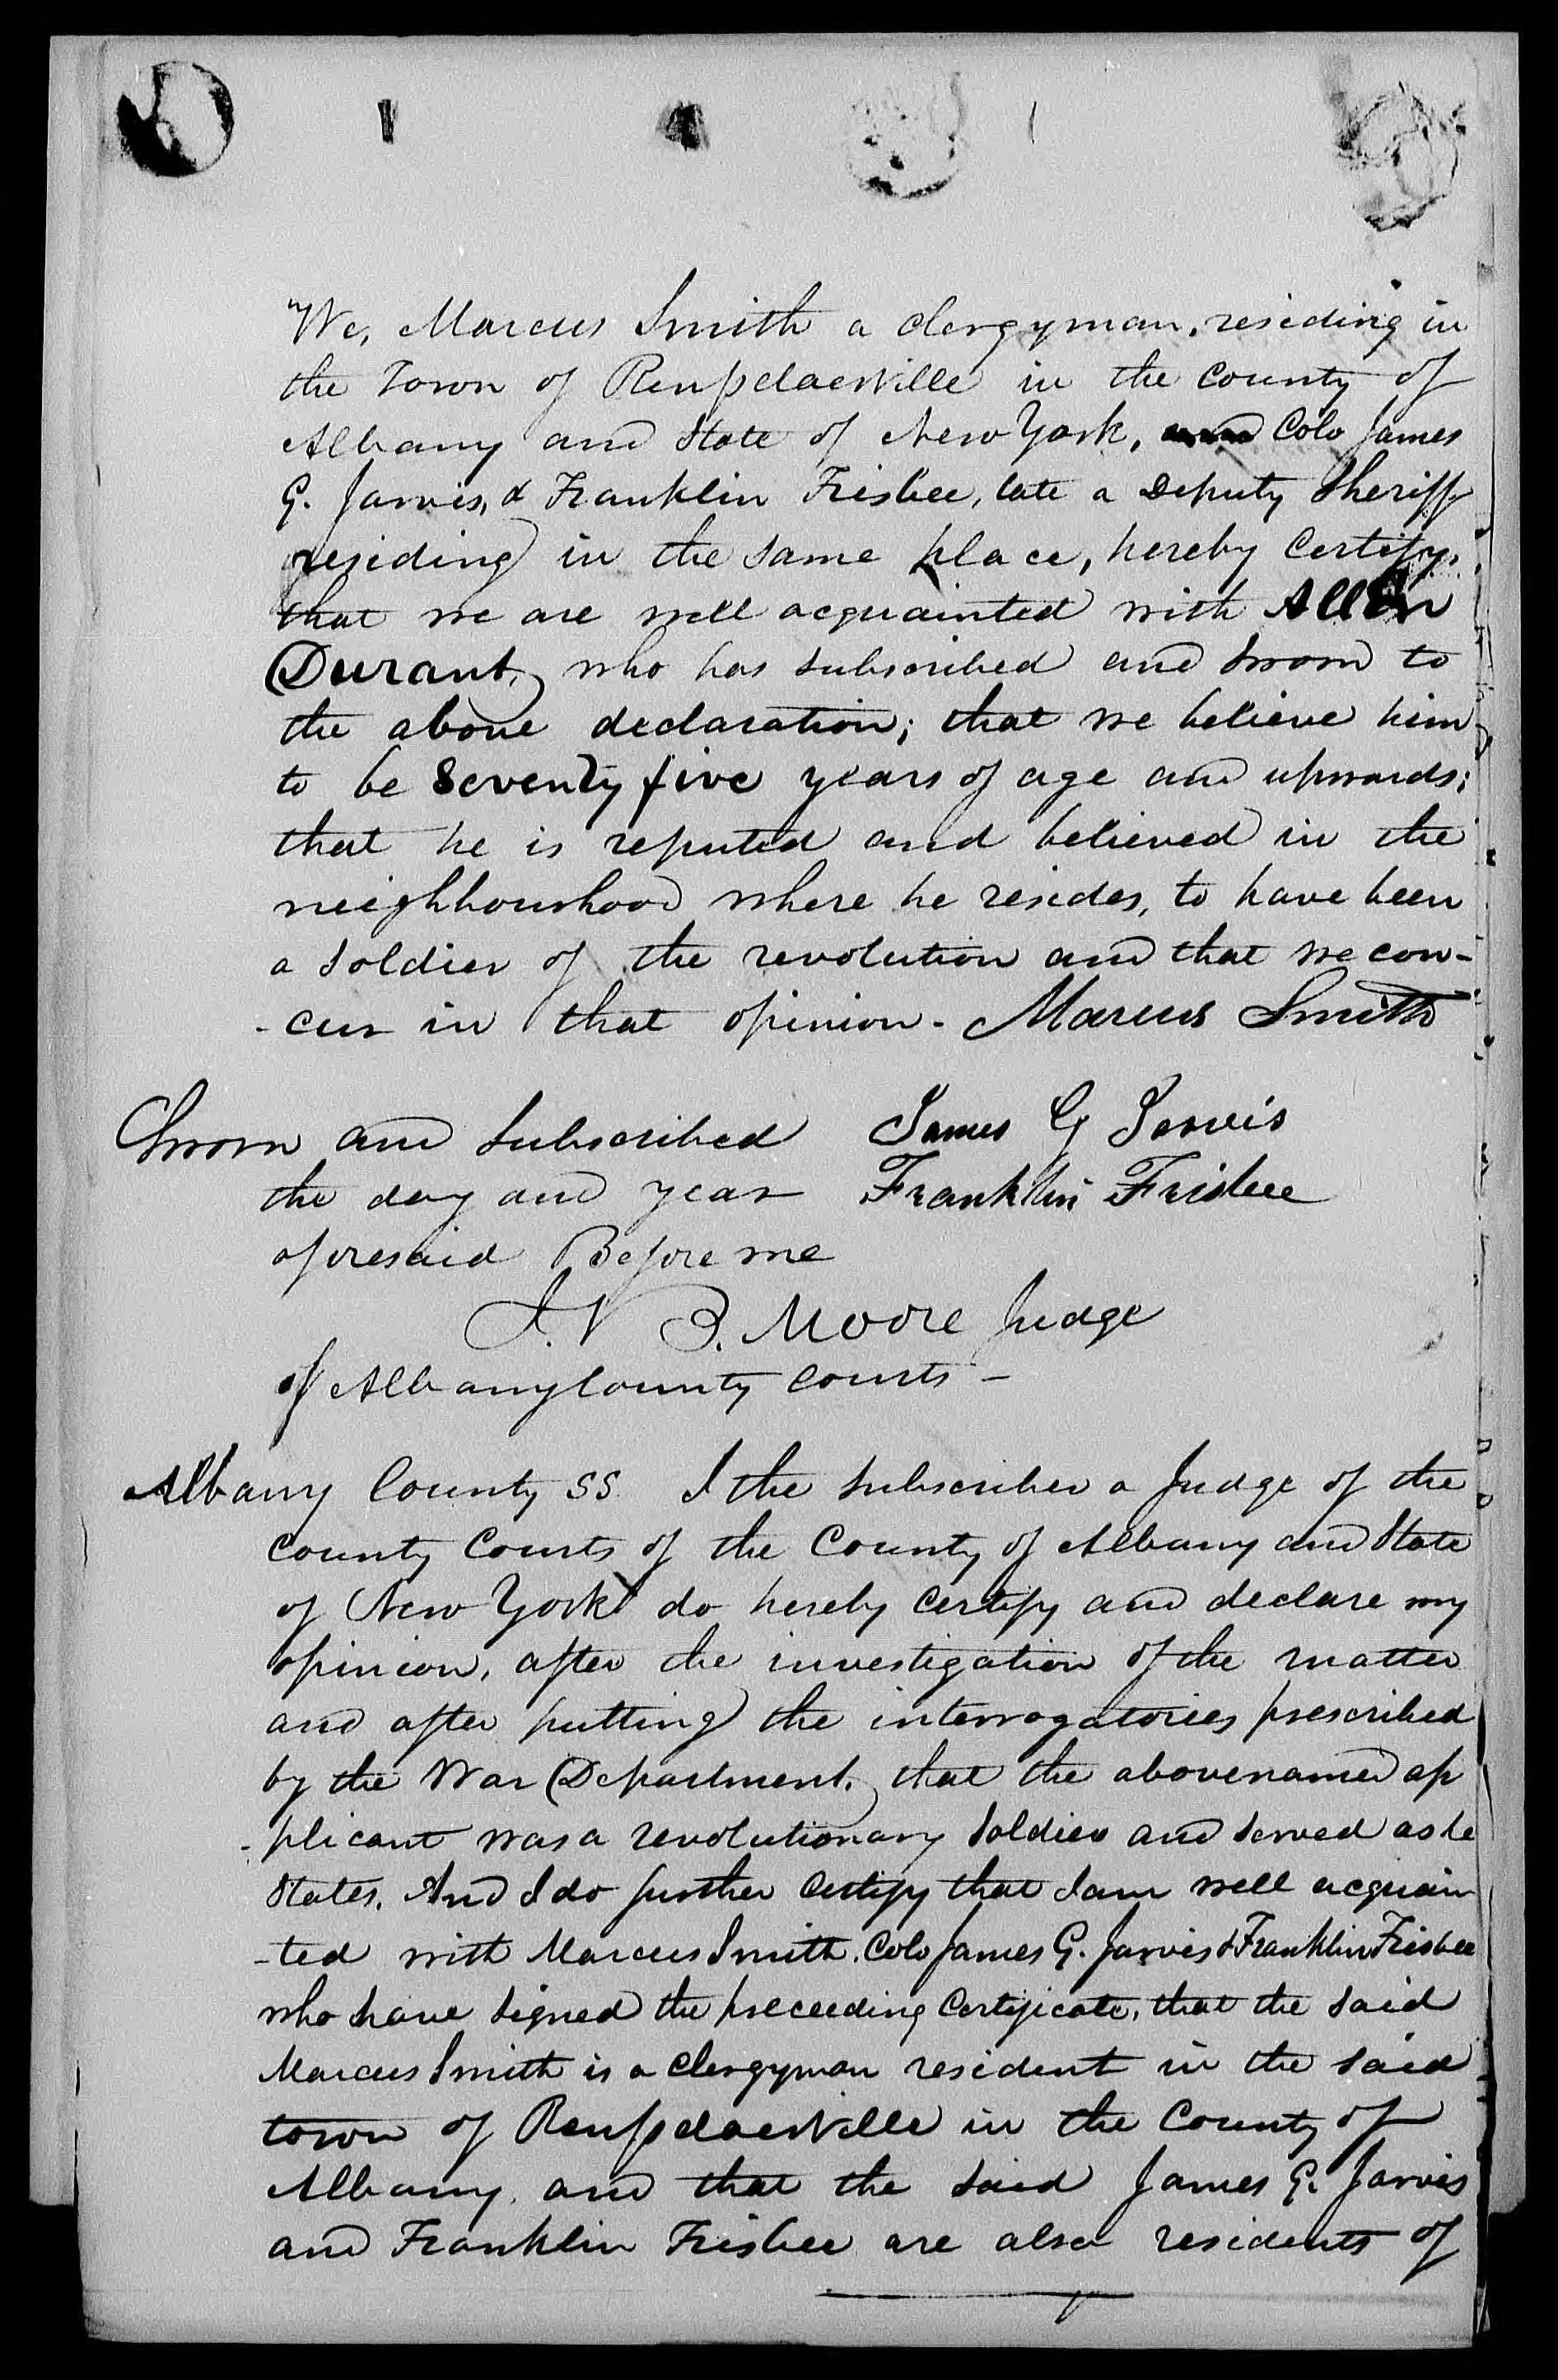 "We, Marcus Smith a clergyman, residing in
the Town of Rensselaerville in the county of
Albany and State of New York, Colo James
G. Jarvis, & Franklin Frisbee, late a Deputy Sheriff
residing in the same place, hereby Certify,
that we are well acquainted with Allen
Durant, who has subscribed and sworn to
the above declaration; that we believe him
to be Seventy five years of age and upwards;
that he is reputed and believed in the
neighbourhood where he resides, to have been
a soldier of the revolution and that we con-
-cur in that opinion. Marcus Smith
Sworn and subscribed James G Jarvis
the day and year Franklin Frisbee
aforesaid Before me
B. Moore Judge
of Albany County Courts -
Albany County SS. I the subscriber a Judge of the
County Courts of the County of Albany and State
of New York do hereby certify and declare my
opinion, after the investigation of the matter
and after putting the interrogatories prescribed
by the War Department, that the abovenamed ap
-plicant was a revolutionary Soldier and served as he
States. And I do further certify that I am well acquain
-ted with Marcus Smith, Colo James G. Jarvis & Franklin Frisbee
who have signed the preceeding Certificate, that the said
Marcus Smith is a Clergyman resident in the said
town of Rensselaerville in the County of
Albany, and that the said James G. Jarvis
and Franklin Frisbee are also residents of